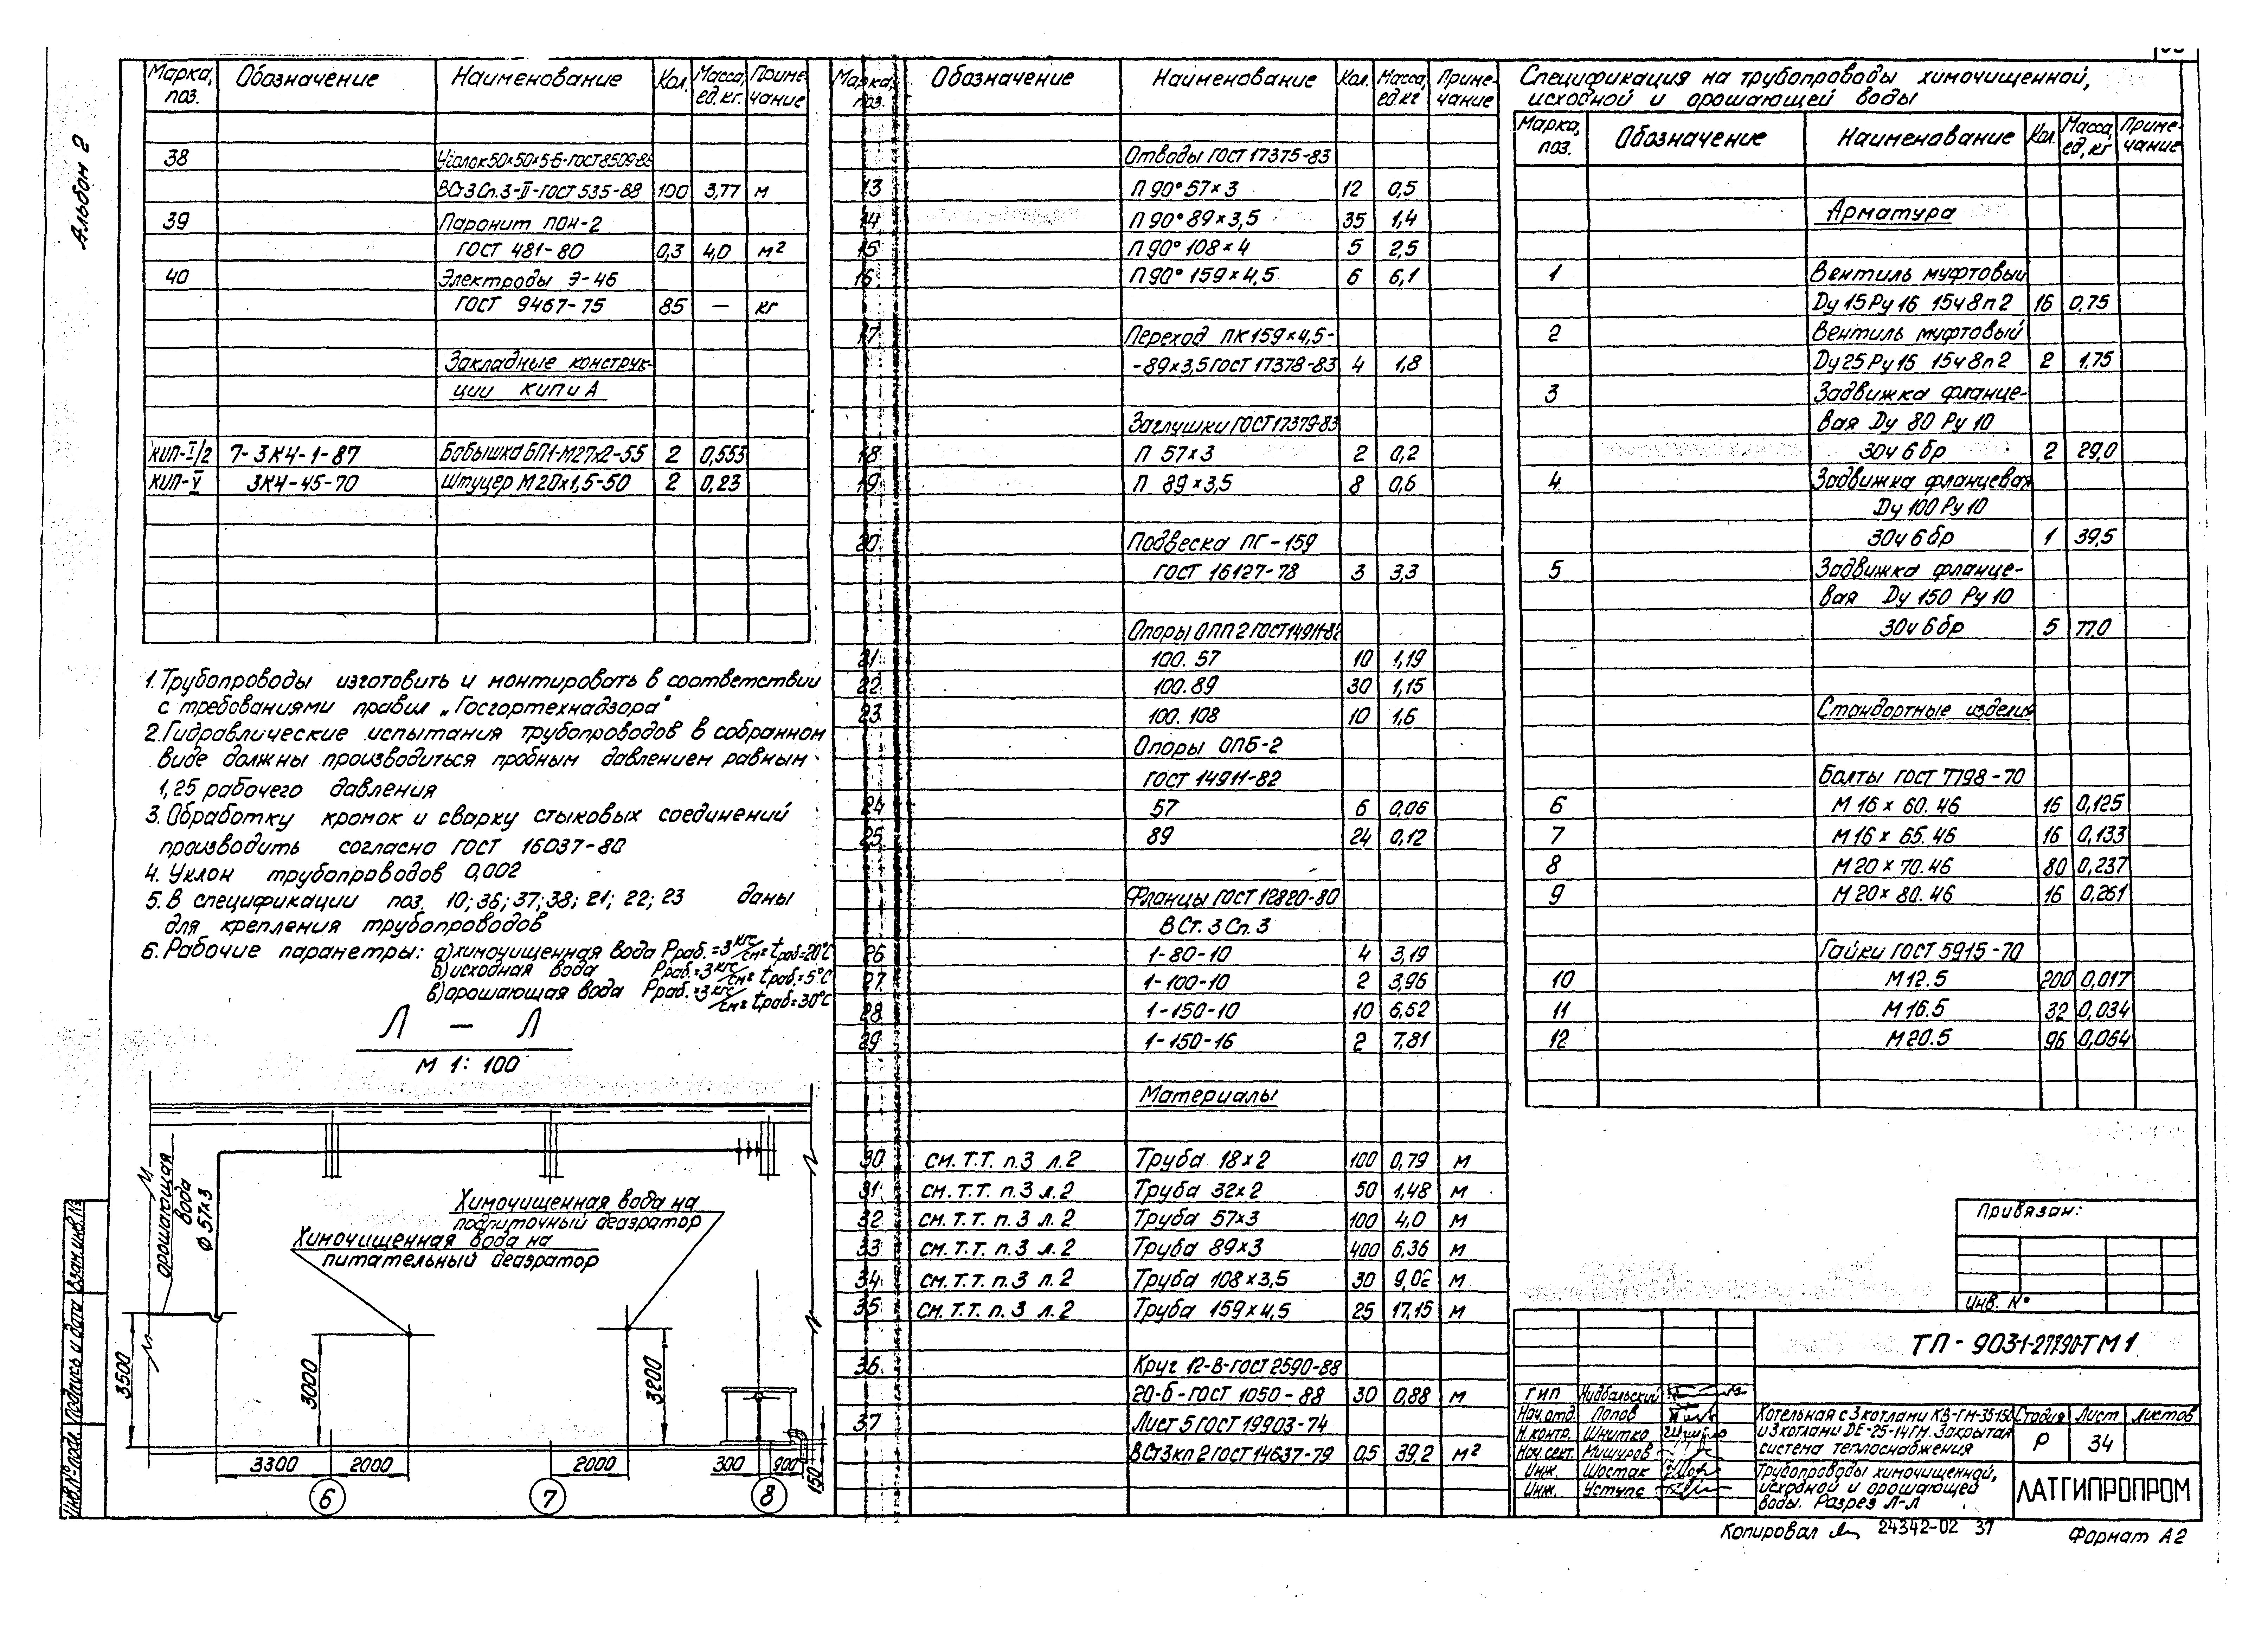 Альбом 2
Марка, поз. Обозначение Наименование Кол. Масса, ед.кг. Приме-чание
38 Уголок 50×50×5-Б-ГОСТ 8509-85
ВСт3Сп.3-II-ГОСТ 535-88 100 3,77 м
39 Паронит ПОН-2
ГОСТ 481-80 0,3 4,0 м²
40 Электроды Э-46
ГОСТ 9467-75 85 — кг
Закладные конструк-
ции КИПиА
КИП-I/2 7-ЗК4-1-87 Бобышка БП1-М27х2-55 2 0,553
КИП-V ЗК4-45-70 Штуцер М20х1,5-50 2 0,23
1. Трубопроводы изготовить и монтировать в соответствии
с требованиями правил „Госгортехнадзора"
2. Гидравлические испытания трубопроводов в собранном
виде должны производиться пробным давлением равным
1,25 рабочего давления
3. Обработку кромок и сварку стыковых соединений
производить согласно ГОСТ 16037-80
4. Уклон трубопроводов 0,002
5. В спецификации поз. 10; 36; 37; 38; 21; 22; 23 даны
для крепления трубопроводов
6. Рабочие параметры: а) химочищенная вода Рраб.=3 кгс/см² tраб=20°С
б) исходная вода Рраб.=3 кгс/см² tраб.=5°С
в) орошающая вода Рраб.=3 кгс/см² tраб=30°С
Л — Л
М 1:100
орошающая
вода
Ф 57х3
Химочищенная вода на
подпиточный деаэратор
Химочищенная вода на
питательный деаэратор
3500
3000
3200
3300 2000 2000 300 900 150
6 7 8
Марка, поз. Обозначение Наименование Кол. Масса, ед.кг Приме-чание
Отводы ГОСТ 17375-83
13 П 90° 57×3 12 0,5
14 П 90° 89×3,5 35 1,4
15 П 90° 108×4 5 2,5
16 П 90° 159×4,5 6 6,1
17 Переход ПК 159×4,5-
-89×3,5 ГОСТ 17378-83 4 1,8
Заглушки ГОСТ 17379-83
18 П 57×3 2 0,2
19 П 89×3,5 8 0,6
20 Подвеска ПГ-159
ГОСТ 16127-78 3 3,3
Опоры ОПП2 ГОСТ 14911-82
21 100. 57 10 1,19
22 100. 89 30 1,15
23 100. 108 10 1,6
Опоры ОПБ-2
ГОСТ 14911-82
24 57 6 0,06
25 89 24 0,12
Фланцы ГОСТ 12820-80
ВСт. 3 Сп. 3
26 1-80-10 4 3,19
27 1-100-10 2 3,96
28 1-150-10 10 6,62
29 1-150-16 2 7,81
Материалы
30 см. Т.Т. п.3 л.2 Труба 18×2 100 0,79 м
31 см. Т.Т. п.3 л.2 Труба 32×2 50 1,48 м
32 см. Т.Т. п.3 л.2 Труба 57×3 100 4,0 м
33 см. Т.Т. п.3 л.2 Труба 89×3 400 6,36 м
34 см. Т.Т. п.3 л.2 Труба 108×3,5 30 9,02 м
35 см. Т.Т. п.3 л.2 Труба 159×4,5 25 17,15 м
36 Круг 12-В-ГОСТ 2590-88
20-б-ГОСТ 1050-88 30 0,88 м
37 Лист 5 ГОСТ 19903-74
ВСт3кп2 ГОСТ 14637-79 0,5 39,2 м²
Спецификация на трубопроводы химочищенной,
исходной и орошающей воды
Марка, поз. Обозначение Наименование Кол. Масса, ед, кг Приме-чание
Арматура
1 Вентиль муфтовый
Ду 15 Ру 16 15ч 8п2 16 0,75
2 Вентиль муфтовый
Ду 25 Ру 16 15ч 8п2 2 1,75
3 Задвижка фланце-
вая Ду 80 Ру 10
30ч 6бр 2 29,0
4 Задвижка фланцевая
Ду 100 Ру 10
30ч 6бр 1 39,5
5 Задвижка фланце-
вая Ду 150 Ру 10
30ч 6бр 5 77,0
Стандартные изделия
Болты ГОСТ 7798-70
6 М 16 × 60. 46 16 0,125
7 М 16 × 65. 46 16 0,133
8 М 20 × 70. 46 80 0,237
9 М 20 × 80. 46 16 0,261
Гайки ГОСТ 5915-70
10 М 12.5 200 0,017
11 М 16.5 32 0,034
12 М 20.5 96 0,064
Привязан:
Инв. №
ТП - 903-1-277.90-ТМ1
ГИП Нидбальский
Нач.отд. Попов
Н.контр. Шнитко
Нач.сект. Мишуров
Инж. Шостак
Инж. Уступс
Котельная с 3 котлами КВ-ГМ-35-150
и 3 котлами ДЕ-25-14ГМ. Закрытая
система теплоснабжения
Стадия Лист Листов
Р 34
Трубопроводы химочищенной,
исходной и орошающей
воды. Разрез Л-Л
ЛАТГИПРОПРОМ
Инв.№ подл. Подпись и дата Взам.инв.№
Копировал 24342-02 37
Формат А2